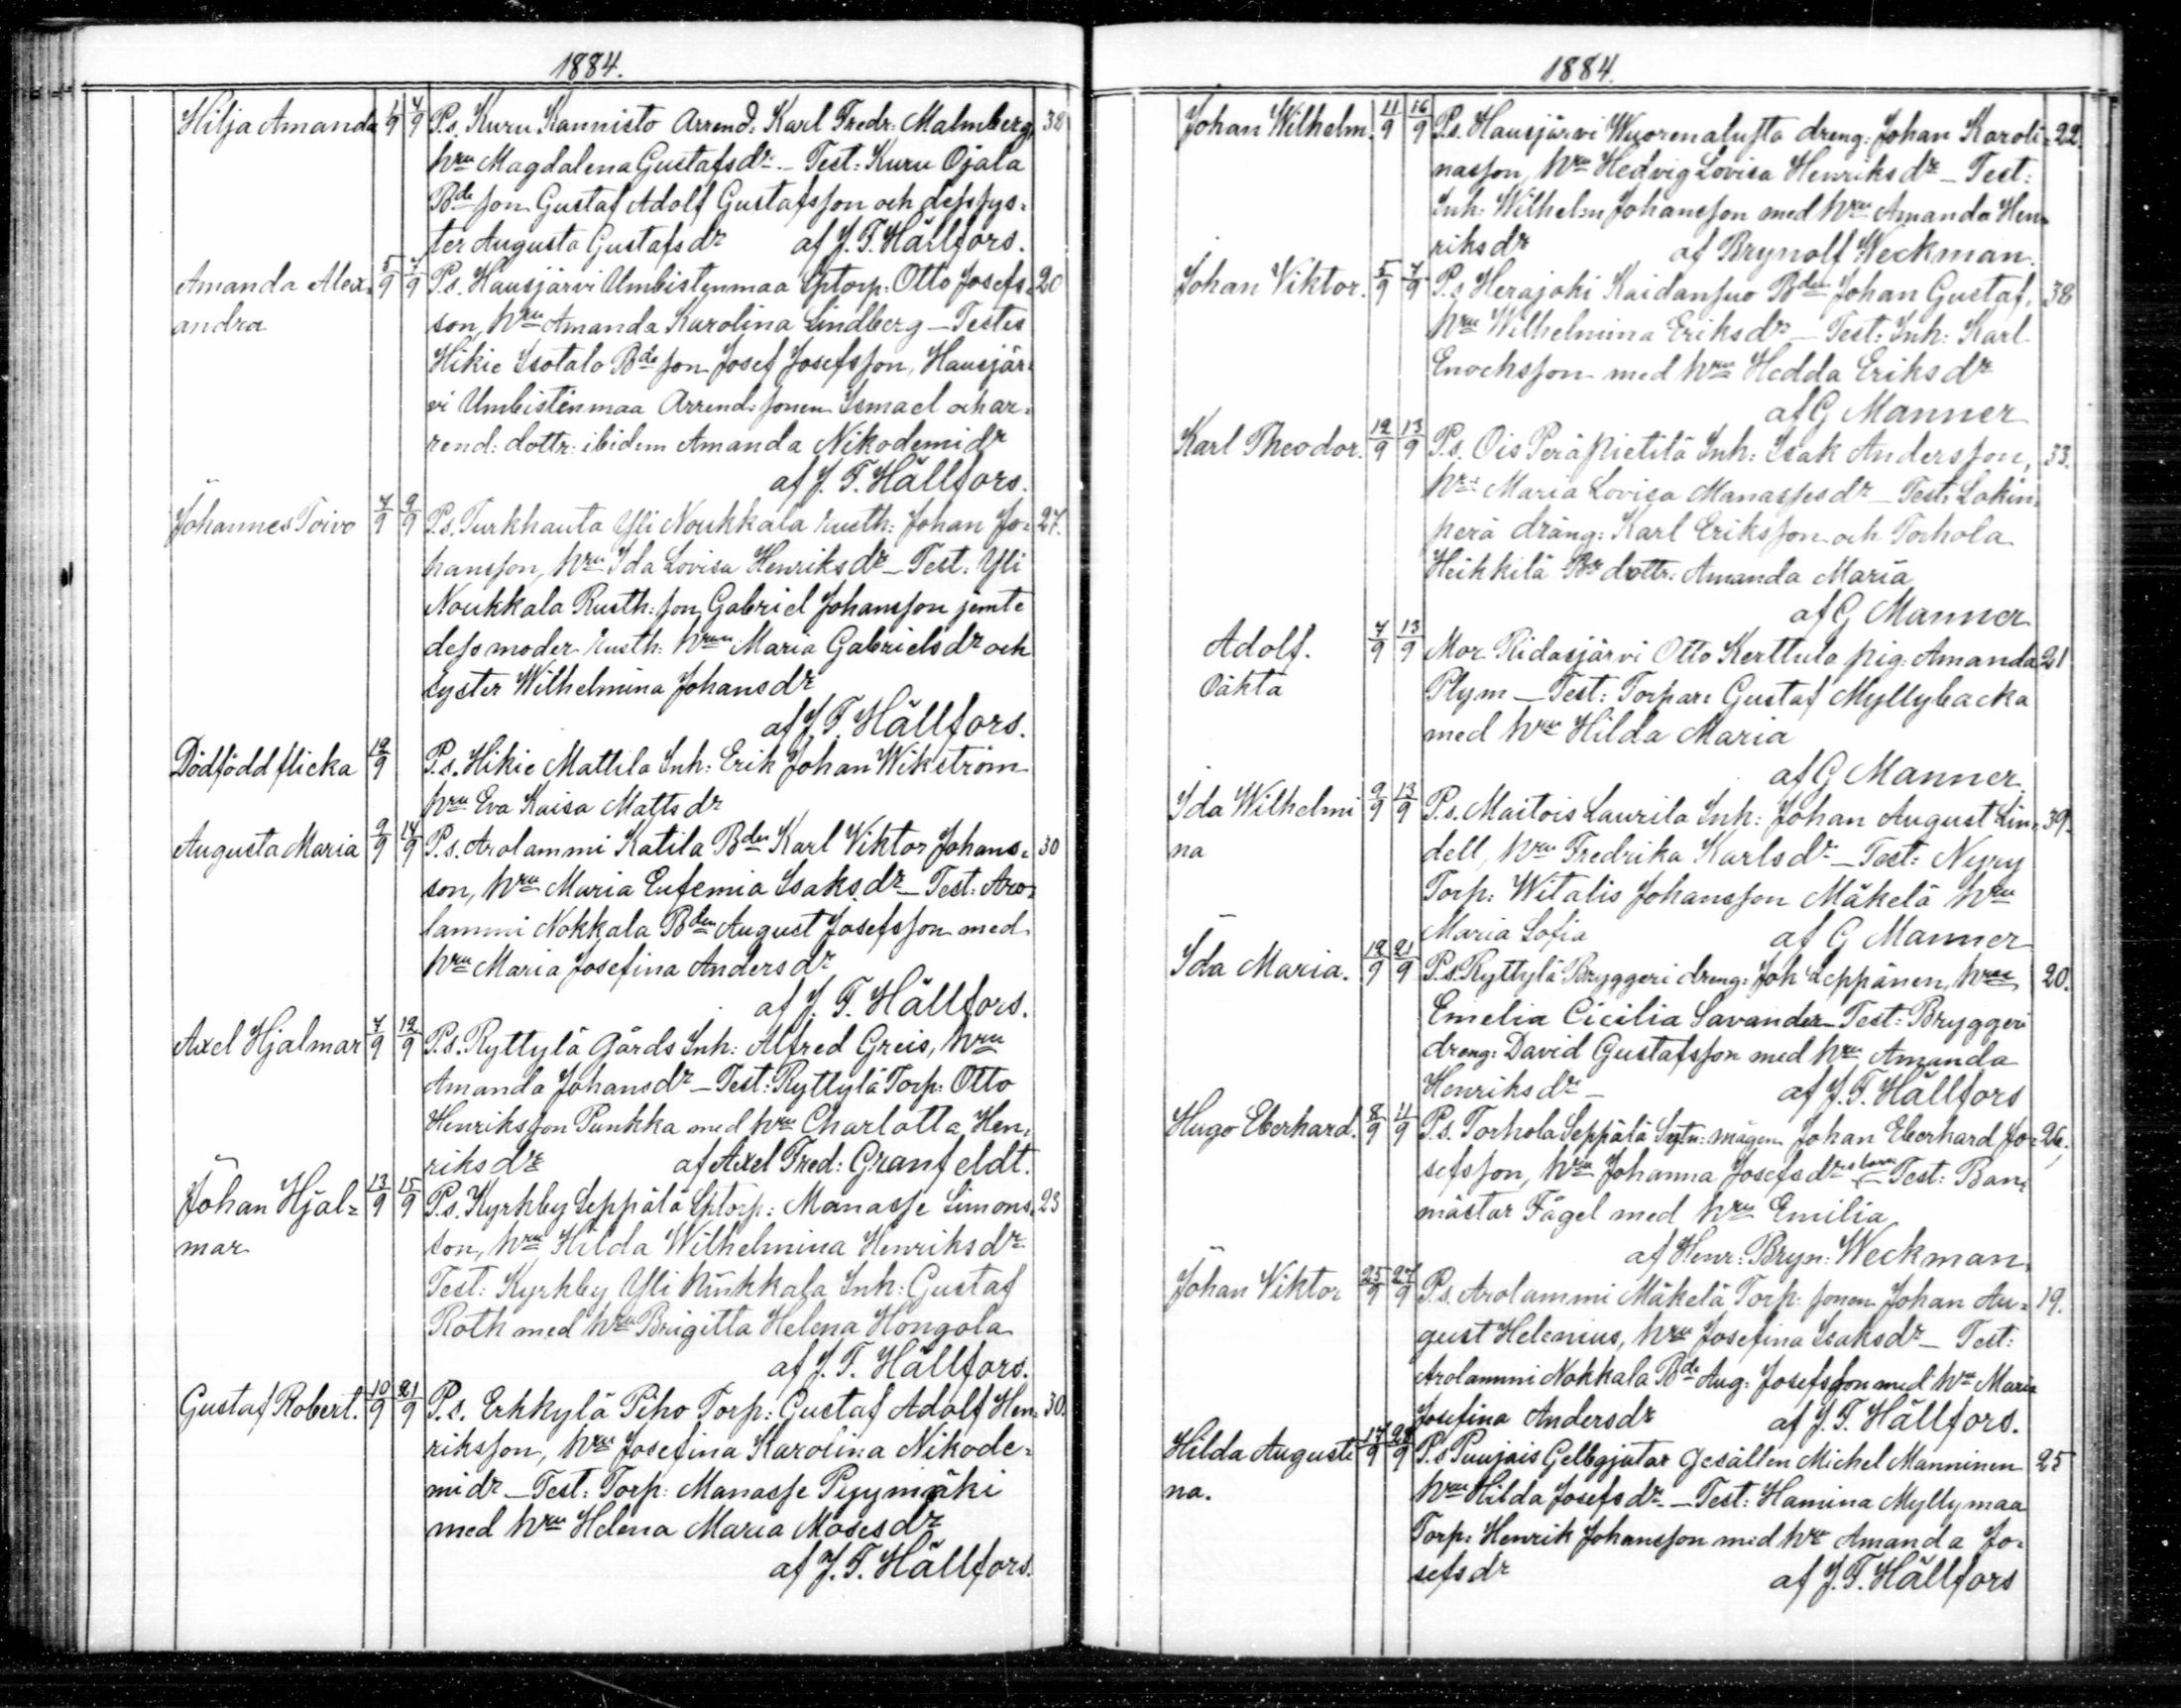 1884.
Hilja Amanda 1/9 7/9 P.s. Kuru Kannisto Arrend: Karl Fredr: Malmberg, 38
hru Magdalena Gustafsdr. – Test: Kuru Ojala
Bde son Gustaf Adolf Gustafsson och dess sys-
ter Augusta Gustafsdr af J. F. Hällfors.
Amanda Alex- 5/9 7/9 P.s. Hausjärvi Umbistenmaa Sptorp: Otto Josefs- 20
andra son, hru Amanda Karolina Lindberg – Testes
Hikie Isotalo Bde son Josef Josefsson, Hausjär-
vi Umbistenmaa Arrend: sonen Ismael och ar-
rend: dottr: ibidem Amanda Nikodemidr
af J. F. Hällfors.
Johannes Toivo 7/9 9/9 P.s. Turkhauta Yli Noukkala rusth: Johan Jo- 27.
hansson, hru Ida Lovisa Henriksdr – Test: Yli
Noukkala Rusth: son Gabriel Johansson jemte
dess moder rusth: hrun Maria Gabrielsdr och
syster Wilhelmina Johansdr
af J. F. Hällfors.
Dödfödd flicka 12/9 P.s. Hikie Mattila Inh: Erik Johan Wikström
hru Eva Kaisa Mattsdr
Augusta Maria 9/9 14/9 P.s. Arolammi Katila Bden Karl Viktor Johans- 30
son, hru Maria Eufemia Isaksdr – Test: Aro-
lammi Nokkala Bden August Josefsson med
hru Maria Josefina Andersdr
af J. F. Hällfors.
Axel Hjalmar 7/9 12/9 P.s. Ryttylä Gårds Inh: Alfred Greis, hru
Amanda Johansdr – Test: Ryttylä Torp: Otto
Henriksson Punkka med hru Charlotta Hen-
riksdr af Axel Fred: Granfeldt.
Johan Hjal- 13/9 15/9 P.s. Kyrkby Seppälä Sptorp: Manasse Simons- 23
mar son, hru Hilda Wilhelmina Henriksdr
Test: Kyrkby Yli Inh: Gustaf
Roth med hru Brigitta Helena Hongola
af J. F. Hällfors.
Gustaf Robert. 10/9 21/9 P.s. Erkkylä Piho Torp: Gustaf Adolf Hen- 30.
riksson, hru Josefina Karolina Nikode-
midr – Test: Torp: Manasse Pyymäki
med hru Helena Maria Mosesdr
af J. F. Hällfors.
1884.
Johan Wilhelm. 11/9 16/9 P.s. Hausjärvi Wuorenalusta dreng: Johan Karoli- 22
nasson, hru Hedvig Lovisa Henriksdr – Test:
Inh: Wilhelm Johansson med hru Amanda Hen-
riksdr af Brynolf Weckman.
Johan Viktor. 5/9 7/9 P.s. Herajoki Kaidansuo Bden Johan Gustaf, 38
hru Wilhelmina Eriksdr – Test: Inh: Karl
Enochsson med hru Hedda Eriksdr
af G Manner
Karl Theodor. 12/9 13/9 P.s. Ois Peräpietilä Inh: Isak Andersson, 33.
hru Maria Lovisa Manassesdr – Test: Lakin-
perä dräng: Karl Eriksson och Torhola
Heikkilä Bde dottr: Amanda Maria
af G Manner
Adolf. 7/9 13/9 Mor Ridasjärvi Otto Kerttula pig: Amanda 21
Oäkta Plym – Test: Torpare Gustaf Myllybacka
med hru Hilda Maria
af G Manner.
Ida Wilhelmi 9/9 13/9 P.s. Maitois Laurila Inh: Johan August Lin- 39.
na dell, hru Fredrika Karlsdr – Test: Nyry
Torp: Witalis Johansson Mäkelä hru
Maria Sofia af G Manner
Ida Maria. 12/9 21/9 P.s. Ryttylä Bryggeri dreng: Joh Leppänen, hru 20.
Emelia Cicilia Savander – Test: Bryggeri
dreng: David Gustafsson med hru Amanda
Henriksdr – af J. F. Hällfors
Hugo Eberhard. 8/9 11/9 P.s. Torhola Seppälä Sytn: mågen Johan Eberhard Jo- 26.
sefsson, hru Johanna Josefsdrs barn – Test: Ban-
mästar Fågel med hru Emilia
af Henr: Bryn: Weckman.
Johan Viktor 25/9 27/9 P.s. Arolammi Mäkelä Torp: sonen Johan Au- 19.
gust Helenius, hru Josefina Isaksdr – Test:
Arolammi Nokkala Bde Aug: Josefsson med hru Maria
Josefina Andersdr af J. F. Hällfors.
Hilda Auguste 17/9 28/9 P.s Puujais Gelbgjutar Gesällen Michel Manninen 25
na. hru Hilda Josefsdr – Test: Hamina Myllymaa
Torp: Henrik Johansson med hru Amanda Jo-
sefsdr af J. F. Hällfors